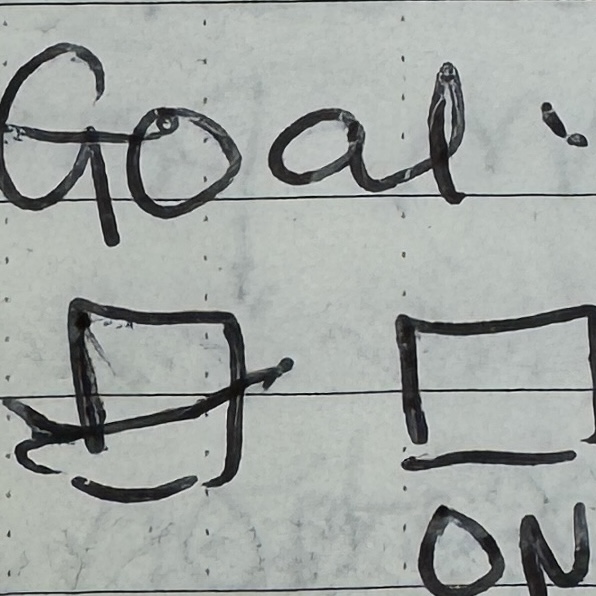 Goal:
ON